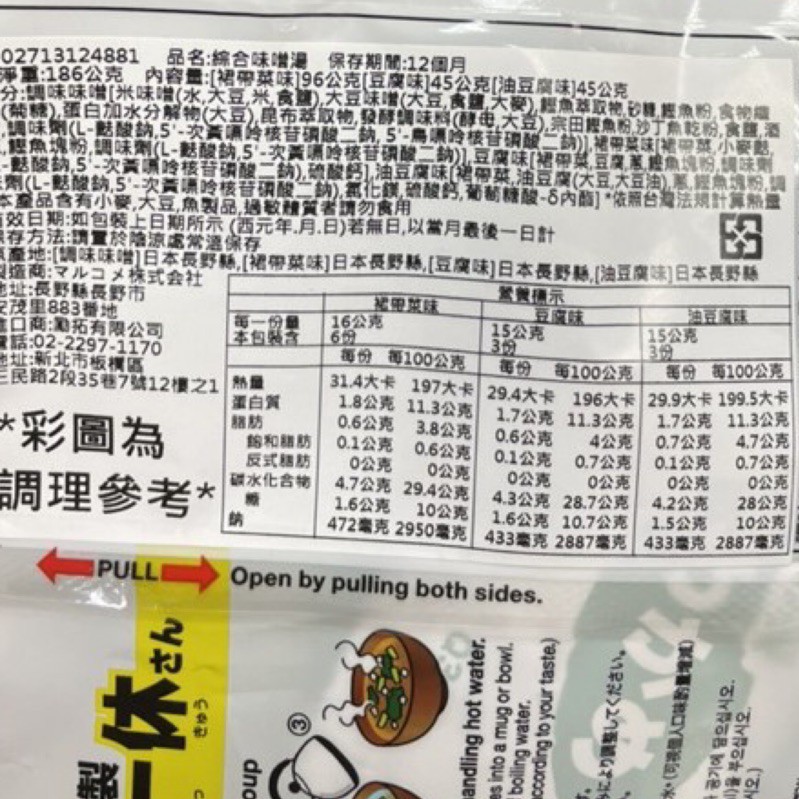 02713124881 品名:綜合味噌湯 保存期間:12個月
淨重:186公克 內容量:[裙帶菜味]96公克[豆腐味]45公克[油豆腐味]45公克
分:調味味噌[米味噌(水,大豆,米,食鹽),大豆味噌(大豆,食鹽,大麥),鰹魚萃取物,砂糖,鰹魚粉,食物纖
(葡糖),蛋白加水分解物(大豆),昆布萃取物,發酵調味料(酵母,大豆),宗田鰹魚粉,沙丁魚乾粉,食鹽,酒
,調味劑(L-麩酸鈉,5'-次黃嘌呤核苷磷酸二鈉,5'-鳥嘌呤核苷磷酸二鈉)],裙帶菜味[裙帶菜,小麥麩
,鰹魚塊粉,調味劑(L-麩酸鈉,5'-次黃嘌呤核苷磷酸二鈉)],豆腐味[裙帶菜,豆腐,蔥,鰹魚塊粉,調味劑
-麩酸鈉,5'-次黃嘌呤核苷磷酸二鈉),硫酸鈣],油豆腐味[裙帶菜,油豆腐(大豆,大豆油),蔥,鰹魚塊粉,調
劑(L-麩酸鈉,5'-次黃嘌呤核苷磷酸二鈉),氯化鎂,硫酸鈣,葡萄糖酸-δ內酯] *依照台灣法規計算熱量
本產品含有小麥,大豆,魚製品,過敏體質者請勿食用
有效日期:如包裝上日期所示 (西元年.月.日)若無日,以當月最後一日計
保存方法:請置於陰涼處常溫保存
原產地:[調味味噌]日本長野縣,[裙帶菜味]日本長野縣,[豆腐味]日本長野縣,[油豆腐味]日本長野縣
製造商:マルコメ株式会社
地址:長野縣長野市
安茂里883番地
進口商:勵拓有限公司
電話:02-2297-1170
地址:新北市板橋區
三民路2段35巷7號12樓之1
*彩圖為
調理參考*
營養標示
裙帶菜味 豆腐味 油豆腐味
每一份量 16公克 15公克 15公克
本包裝含 6份 3份 3份
每份 每100公克 每份 每100公克 每份 每100公克
熱量 31.4大卡 197大卡 29.4大卡 196大卡 29.9大卡 199.5大卡
蛋白質 1.8公克 11.3公克 1.7公克 11.3公克 1.7公克 11.3公克
脂肪 0.6公克 3.8公克 0.6公克 4公克 0.7公克 4.7公克
飽和脂肪 0.1公克 0.6公克 0.1公克 0.7公克 0.1公克 0.7公克
反式脂肪 0公克 0公克 0公克 0公克 0公克 0公克
碳水化合物 4.7公克 29.4公克 4.3公克 28.7公克 4.2公克 28公克
糖 1.6公克 10公克 1.6公克 10.7公克 1.5公克 10公克
鈉 472毫克 2950毫克 433毫克 2887毫克 433毫克 2887毫克
PULL
Open by pulling both sides.
製
一休さん
きゅう
③
oup
handling hot water.
es into a mug or bowl.
boiling water.
according to your taste.)
により調整してください。
水。(可視個人口味酌量增減)
공기에 담으십시오.
을 부으십시오.